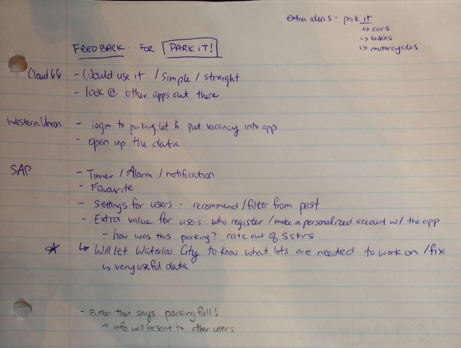 extra ideas - park it
↳ cars
↳ bikes
↳ motorcycles
FEEDBACK FOR PARK IT!
Cloud 66 - Would use it / Simple / straight
- look @ other apps out there
Western Union - login to parking lot & put vacancy into app
- open up the data
SAP - Timer / Alarm / notification
- Favourite
- Settings for users - recommend / filter from past
- Extra value for users who register / make a personalized account w/ the app
- how was this parking? rate out of 5 stars
☆ ↳ Will let Waterloo City to know what lots are needed to work on / fix
↳ very useful data
- Button that says parking full!
→ info will be sent to other users